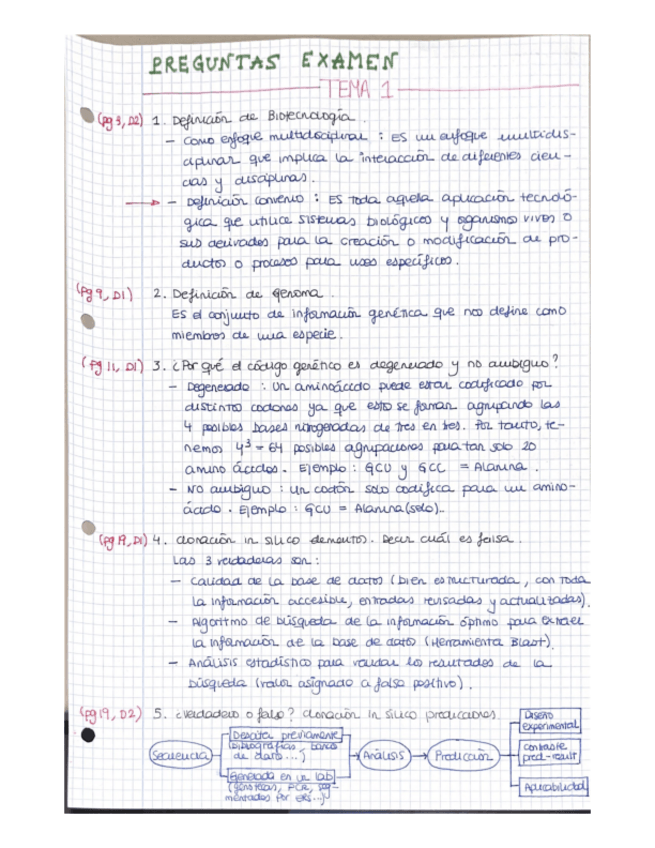 PREGUNTAS EXAMEN
TEMA 1
(pg 3, D2) 1. Definición de Biotecnología.
- Como enfoque multidisciplinar : Es un enfoque multidis-
ciplinar que implica la interacción de diferentes cien-
cias y disciplinas.
→ - Definición convenio : Es toda aquella aplicación tecnoló-
gica que utilice sistemas biológicos y organismos vivos o
sus derivados para la creación o modificación de pro-
ductos o procesos para usos específicos.
(pg 9, D1) 2. Definición de genoma.
Es el conjunto de información genética que nos define como
miembros de una especie.
(pg 11, D1) 3. ¿Por qué el código genético es degenerado y no ambiguo?
- Degenerado : Un aminoácido puede estar codificado por
distintos codones ya que esto se forman agrupando las
4 posibles bases nitrogenadas de tres en tres. Por tanto, te-
nemos 4³ = 64 posibles agrupaciones para tan solo 20
amino ácidos. Ejemplo : GCU y GCC = Alanina.
- NO ambiguo : Un codón solo codifica para un amino-
ácido. Ejemplo : GCU = Alanina (solo).
(pg 19, D1) 4. clonación in silico elementos. Decir cuál es falsa.
Las 3 verdaderas son :
- Calidad de la base de datos (bien estructurada, con toda
la información accesible, entradas revisadas y actualizadas).
- Algoritmo de búsqueda de la información óptimo para extraer
la información de la base de datos (Herramienta Blast).
- Análisis estadístico para validar los resultados de la
búsqueda (valor asignado a falso positivo).
(pg 19, D2) 5. ¿verdadero o falso? clonación in silico predicciones.
Secuencia
Descrita previamente
(bibliografías, bases
de datos...)
Generada en un lab
(genotecas, PCR, seg-
mentados por ERs...)
Análisis
Predicción
Diseño
experimental
contraste
pred-result
Aplicabilidad